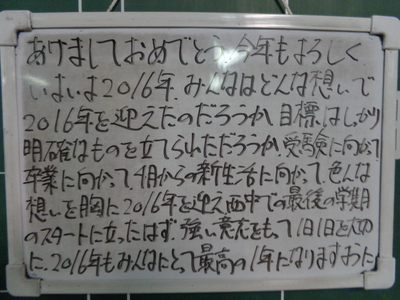 あけましておめでとう.今年もよろしく
いよいよ2016年.みんなはどんな想いで
2016年を迎えたのだろうか.目標はしっかり
明確なものを立てられただろうか.受験に向かって
卒業に向かって.4月からの新生活に向かって.色んな
想いを胸に2016年を迎え西中での最後の学期
のスタートに立ったはず.強い意志をもって1日1日を大切
に.2016年もみんなにとって最高の1年になりますように